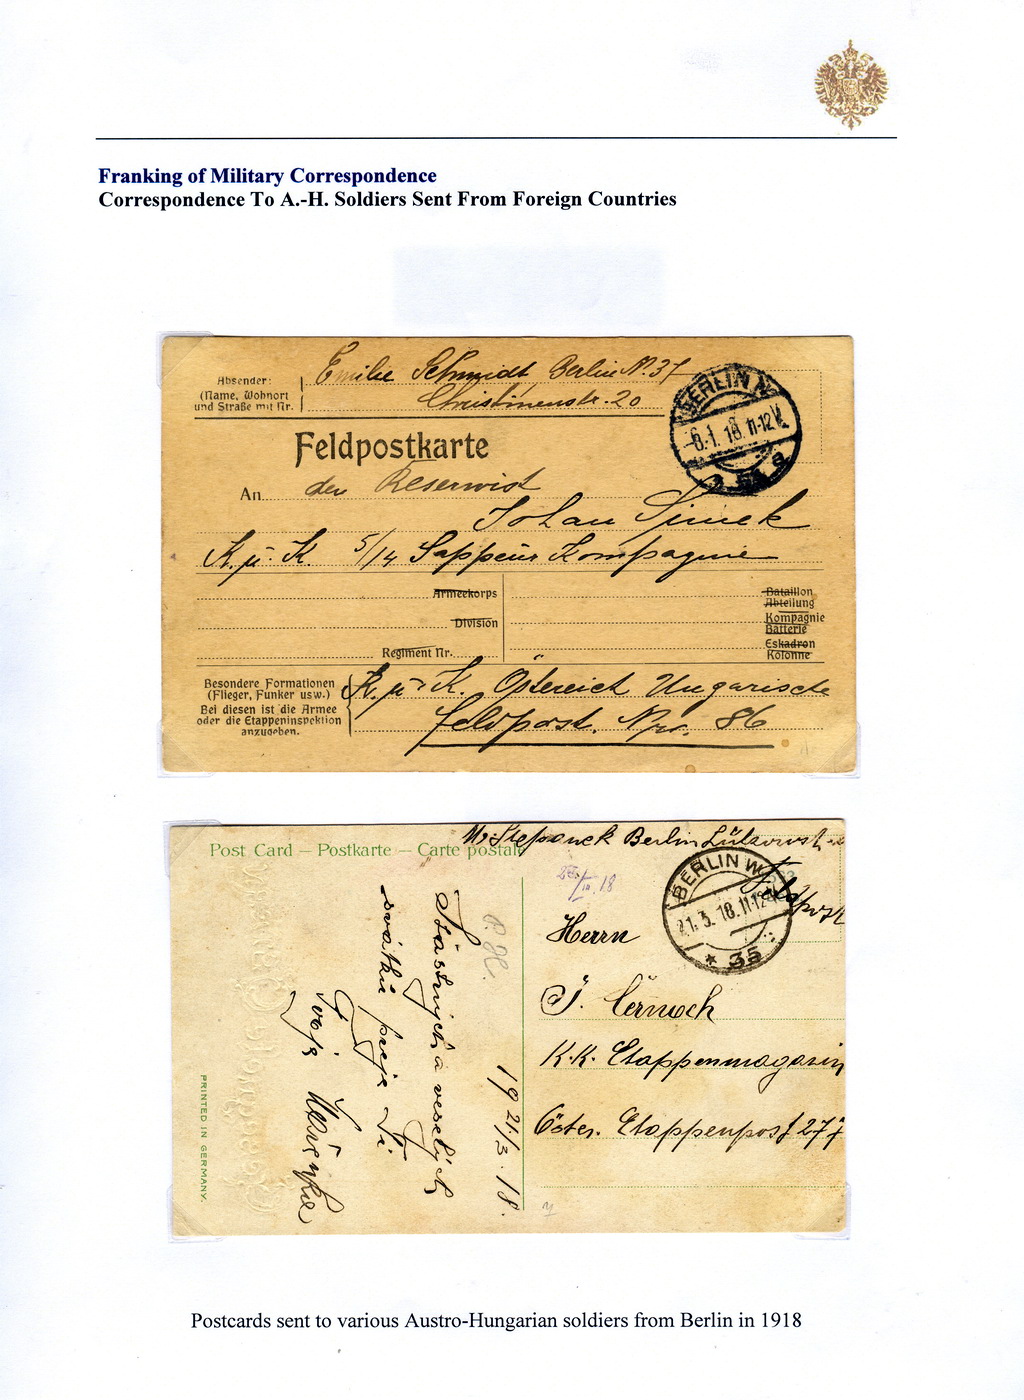 Franking of Military Correspondence
Correspondence To A.-H. Soldiers Sent From Foreign Countries
Absender:
(Name, Wohnort
und Straße mit Nr.
Emilie Schmidt Berlin N. 37
Christinenstr. 20
BERLIN N.
6.1.18.11-12V.
Feldpostkarte
An den Reservist
Johan
K. u. K. 5/14 Sappeur Kompagnie
Armeekorps
Division
Regiment Nr.
Bataillon
Abteilung
Kompagnie
Batterie
Eskadron
Kolonne
Besondere Formationen
(Flieger, Funker usw.)
Bei diesen ist die Armee
oder die Etappeninspektion
anzugeben.
K. u. K. Östereich Ungarische
Feldpost. Nro. 86
Post Card – Postkarte – Carte postale
Stepanek Berlin
Feldpost
BERLIN W.
21.3.18.11-12
* 35
18
Herrn
J. Černoch
K.K. Etappenmagazin
Öster. Etappenpost 277
19 21/3. 18.
Šťastných a veselých
svátků přeje Ti
Tvoje
PRINTED IN GERMANY.
Postcards sent to various Austro-Hungarian soldiers from Berlin in 1918